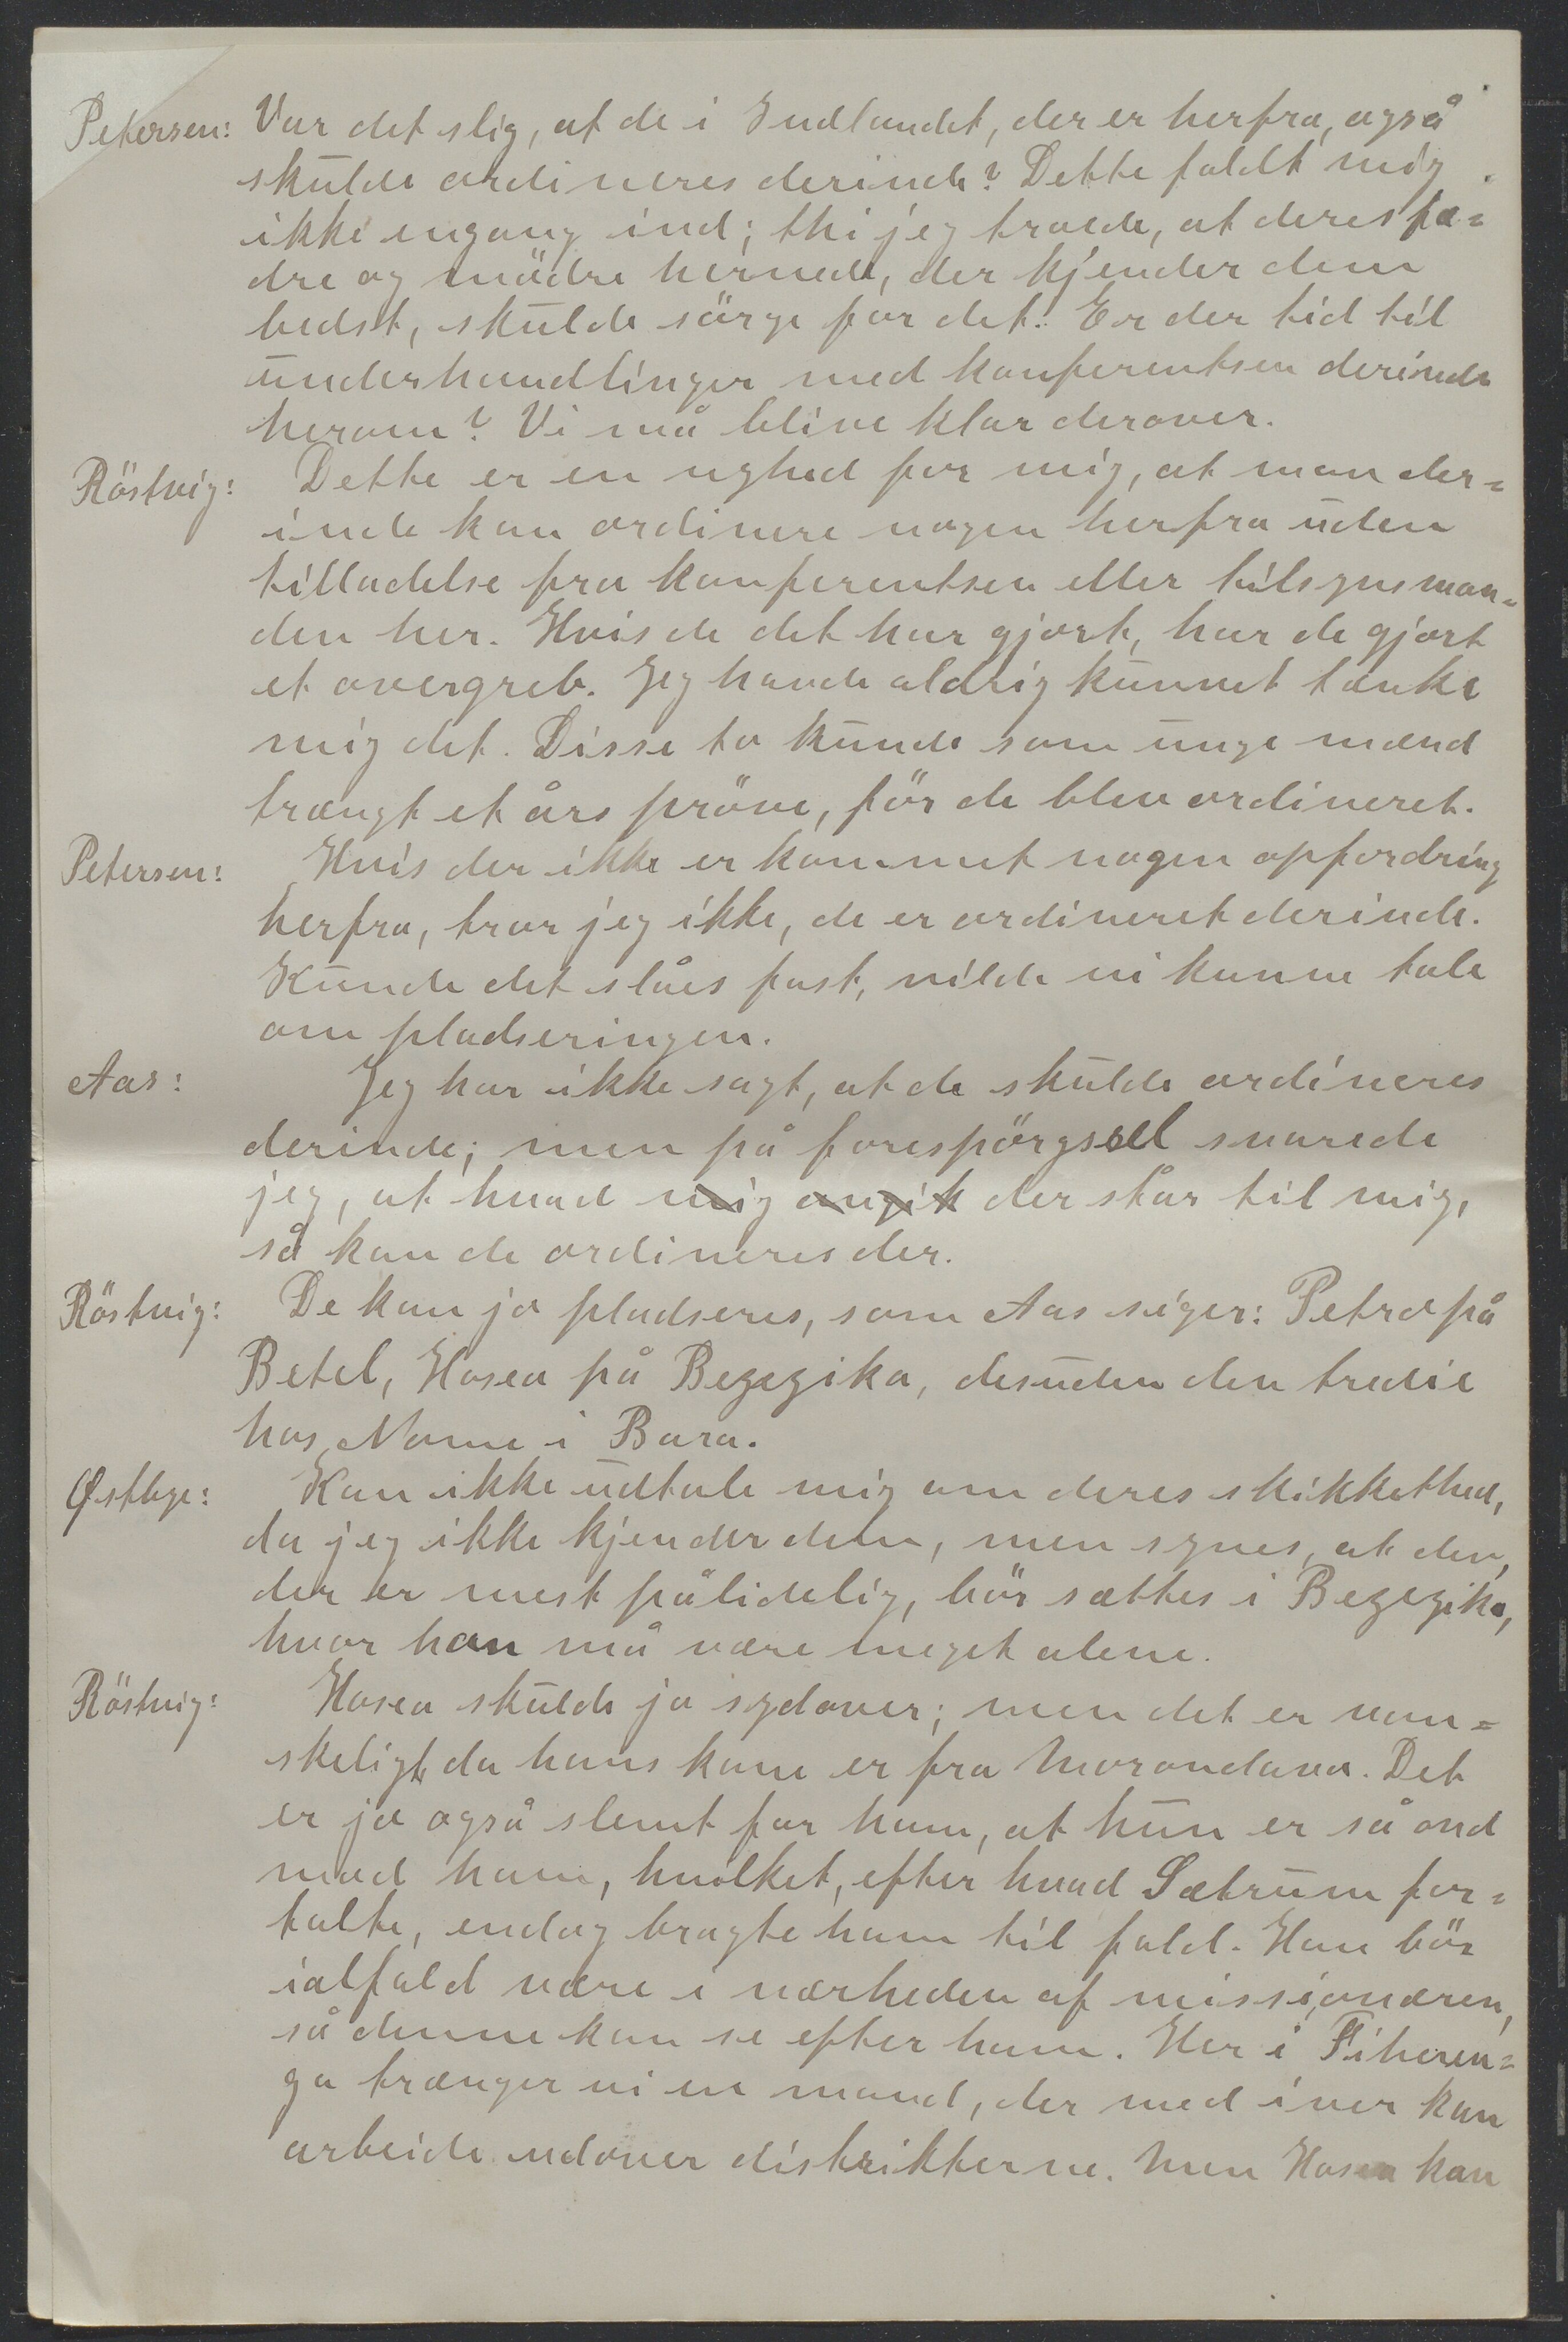 Petersen: Var det slig, at de i Indlandet, der er herfra, også
skulde ordineres derinde? Dette faldt mig
ikke engang ind; thi jeg troede, at deres fæ=
dre og mödre hernede, der kjender dem
bedst, skulde sörge for det. Er der tid til
underhandlinger med konferentsen derinde
herom? Vi må blive klar derover.
Röstvig: Dette er en nyhed for mig, at man der=
inde kan ordinere nogen herfra uden
tilladelse fra konferentsen eller tilsynsman=
den her. Hvis de det har gjort, har de gjort
et overgreb. Jeg havde aldrig kunnet tænke
mig det. Disse to kunde som unge mænd
trængt et års pröve, för de blev ordineret.
Petersen: Hvis der ikke er kommet nogen opfordring
herfra, tror jeg ikke, de er ordineret derinde.
Kunde det slåes fast, vilde vi kunne tale
om pladseringen.
Aas: Jeg har ikke sagt, at de skulde ordineres
derinde; men på forespörgsel svarede
jeg, at hvad mig angik der står til mig,
så kan de ordineres der.
Röstvig: De kan jo pladseres, som Aas siger: Petro på
Betel, Hosea på Bezezika, desuden den tredie
hos Nome i Bara.
Østbye: Kan ikke udtale mig om deres skikkethed,
da jeg ikke kjender dem, men synes, at den,
der er mest pålidelig, bör sættes i Bezezika,
hvor han må være meget alene.
Röstvig: Hosea skulde jo sydover; men det er van=
skeligt da hans kone er fra Morondava. Det
er jo også slemt for ham, at hun er så ond
mod ham, hvilket, efter hvad Sætrum for=
talte, endog bragte ham til fald. Han bör
ialfald være i nærheden af missionæren,
så denne kan se efter ham. Her i Fiheren=
ga trænger vi en mand, der med iver kan
arbeide udover distrikterne. Men Hosea kan